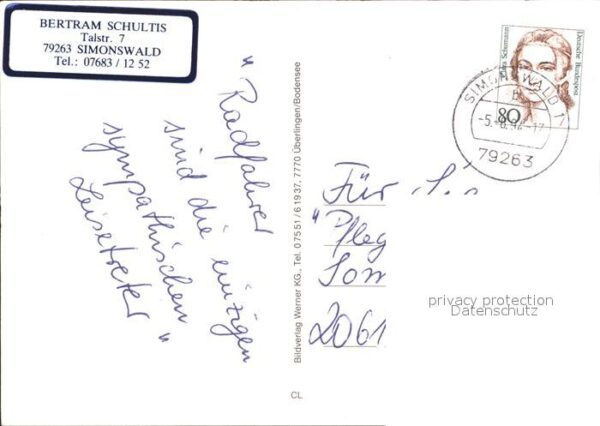 BERTRAM SCHULTIS
Talstr. 7
79263 SIMONSWALD
Tel.: 07683 / 12 52
" Radfahrer
sind die einzigen
sympathischen
Leisetreter "
Bildverlag Werner KG., Tel. 07551/61937, 7770 Überlingen/Bodensee
CL
Schumann
Deutsche Bundespost
80
SIMONSWALD 1
b
79263
Für
" Pfleg
Som
2061
privacy protection
Datenschutz